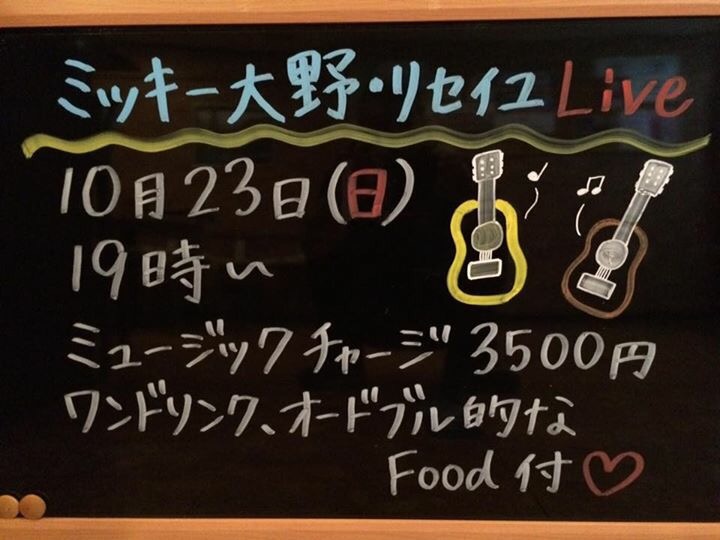 ミッキー大野・リセイユ Live
10月23日(日)
19時〜
ミュージックチャージ 3500円
ワンドリンク、オードブル的な
Food 付♡